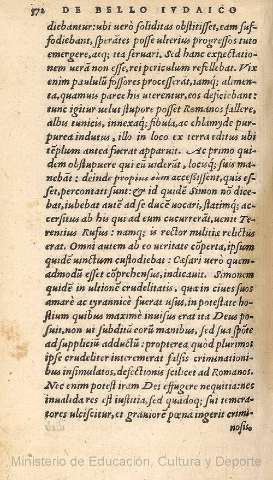 372 DE BELLO IVDAICO
diebantur: ubi verò soliditas obstitisset, eam suf-
fodiebant, sperātes posse ulterius progressos tutò
emergere, atq; ita seruari. Sed hanc expectatio-
nem uerā non esse, rei periculum refellebat. Vix
enim paululū fossores processerāt, iamq; alimen-
ta, quamuis parce his uterentur, eos deficiebant:
tunc igitur uelut stupore posset Romanos fallere,
albis tunicis, innexaq; fibula, ac chlamyde pur-
purea indutus, illo in loco ex terra editus ubi
tēplum antea fuerat apparuit. Ac primo qui-
dem obstupuere qui eū uiderāt, locoq; suo ma-
nebāt: deinde propius cum accessissent, quis es-
set, percontati sunt: & id quidē Simon nō dice-
bat, iubebat autē ad se ducē uocari, statimq; ac-
cersitus ab his qui ad eum cucurrerāt, uenit Te-
rentius Rufus: namq; is rector militiæ relictus
erat. Omni autem ab eo ueritate cōperta, ipsum
quidē uinctum custodiebat: Cæsari verò quem-
admodū esset cōprehensus, indicauit. Simonem
quidē in ultionē crudelitatis, qua in ciues suos
amarè ac tyrannicè fuerat usus, in potestate ho-
stium quibus maximè inuisus erat ita Deus po-
suit, non ui subditū eorū manibus, sed sua spōte
ad suppliciū adductū: propterea quòd plurimos
ipse crudeliter interemerat falsis criminationi-
bus insimulatos, defectionis scilicet ad Romanos.
Nec enim potest iram Dei effugere nequitia: nec
inualida res est iustitia, sed quādoq; sui temera-
tores ulciscitur, et grauiorē pœnā ingerit crimi-
nosis.
Ministerio de Educación, Cultura y Deporte